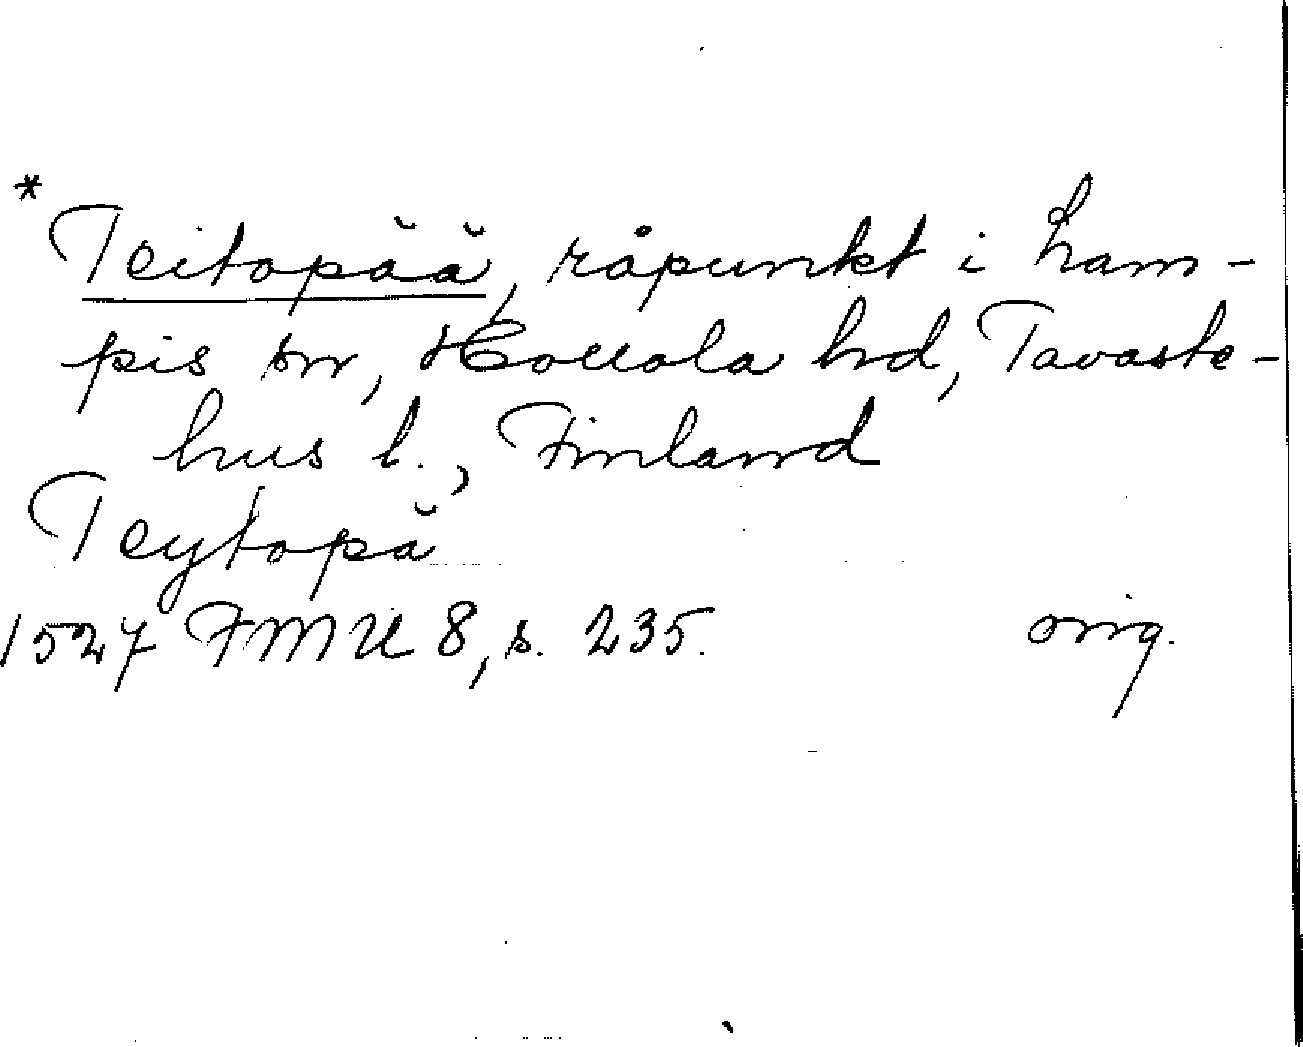 *
Teitopää, råpunkt i Lam-
pis sn, Hollola hd, Tavaste-
hus l., Finland
Teytopä
1527 FMU 8, s. 235. orig.